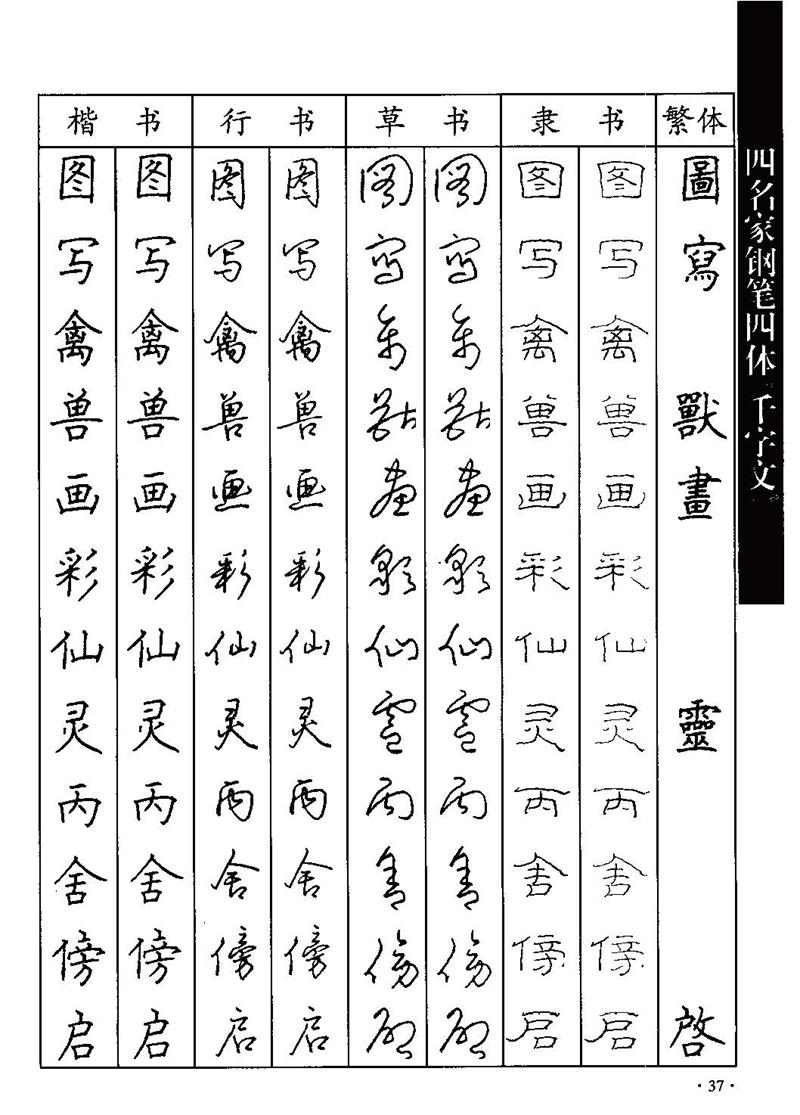 楷书 行书 草书 隶书 繁体
图 图 图 图 图 图 图 图 圖
写 写 写 写 寫 寫 写 写 寫
禽 禽 禽 禽 禽 禽 禽 禽
兽 兽 兽 兽 獸 獸 兽 兽 獸
画 画 画 画 畫 畫 画 画 畫
彩 彩 彩 彩 彩 彩 彩 彩
仙 仙 仙 仙 仙 仙 仙 仙
灵 灵 灵 灵 靈 靈 灵 灵 靈
丙 丙 丙 丙 丙 丙 丙 丙
舍 舍 舍 舍 舍 舍 舍 舍
傍 傍 傍 傍 傍 傍 傍 傍
启 启 启 启 啓 啓 启 启 啓
四名家钢笔四体千字文
·37·